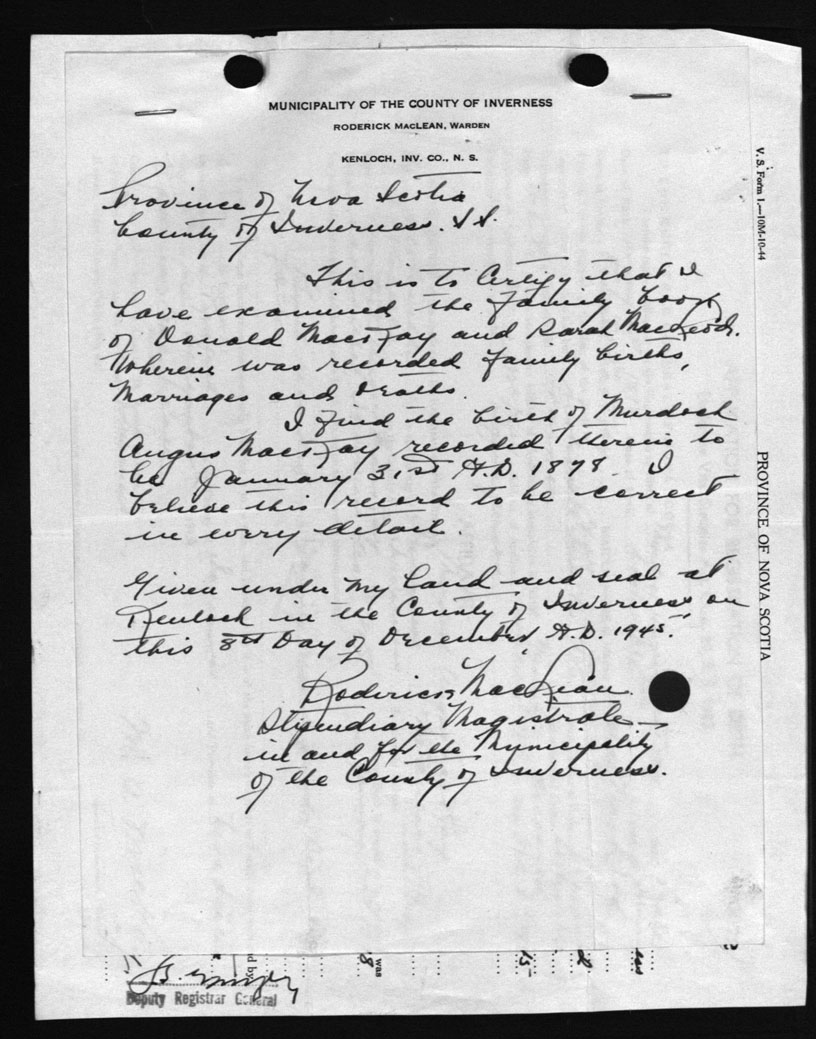 MUNICIPALITY OF THE COUNTY OF INVERNESS
RODERICK MACLEAN, WARDEN
KENLOCH, INV. CO., N. S.
Province of Nova Scotia
County of Inverness. S S.
This is to Certify that I
have examined the family book
of Donald MacKay and Sarah MacLeod.
Wherein was recorded family births,
Marriages and Deaths.
I find the birth of Murdoch
Angus MacKay recorded therein to
be January 31st A.D. 1878. I
believe this record to be correct
in every detail.
Given under my hand and seal at
Kenloch in the County of Inverness on
this 8th Day of December A.D. 1945.
Roderick MacLean
Stipendiary Magistrate
in and for the Municipality
of the County of Inverness.
V. S. Form 1.—10M-10-44
PROVINCE OF NOVA SCOTIA
d by
was
Deputy Registrar General